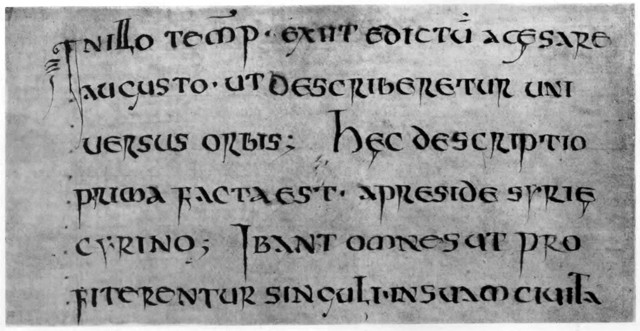 INillo temp̄· exiit edictū acęsare
augusto· ut describeretur uni
uersus orbis; Hęc descriptio
prima facta est· apreside syrię
cyrino; Ibant omnes ut pro
fiterentur singuli· in suam ciuita